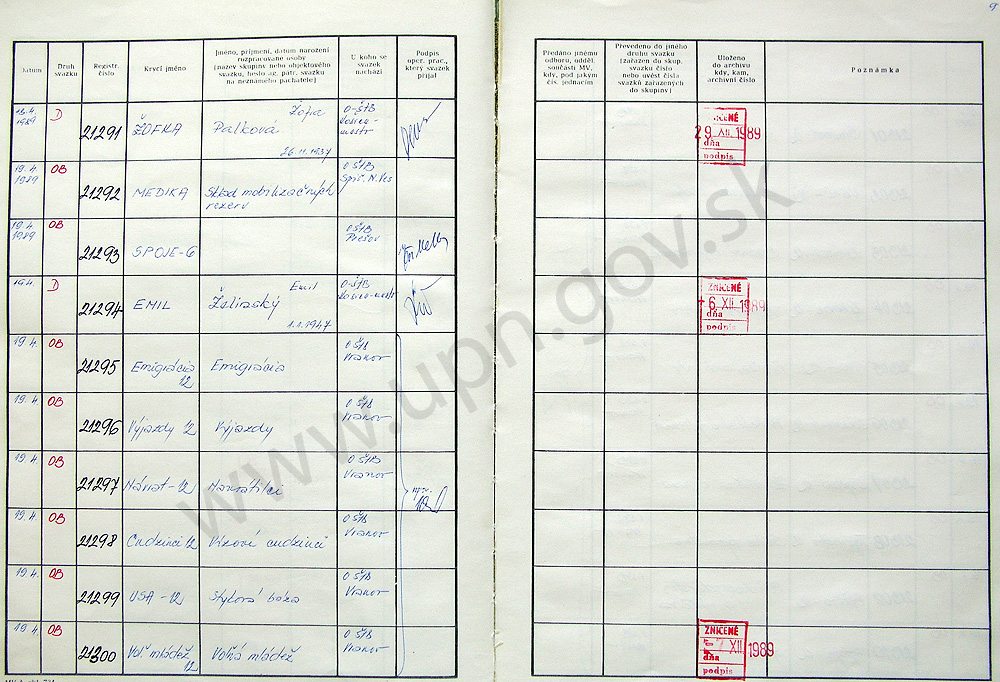 9
Datum
Druh svazku
Registr. číslo
Krycí jméno
Jméno, příjmení, datum narození
rozpracované osoby
(název skupiny nebo objektového
svazku, heslo ag. pátr. svazku
na neznámého pachatele)
U koho se
svazek
nachází
Podpis
oper. prac.,
který svazek
přijal
Předáno jinému
odboru, odděl.
součásti MV,
kdy, pod jakým
čís. jednacím
Převedeno do jiného
druhu svazku
(zařazen do skup.
svazku číslo
nebo uvést čísla
svazků zařazených
do skupiny)
Uloženo
do archivu
kdy, kam,
archivní číslo
Poznámka
1989 D 21291 ŽOFKA Palková Žofia
26.11.1937
29 XII 1989
dňa
podpis
19.4. 1989 OB 21292 MEDIKA Sklad mobilizačných
rezerv
O ŠTB
19.4. 1989 OB 21293 SPOJE-6 O ŠTB
Prešov
19.4. D 21294 EMIL Žilinský Emil
1.1.1947
ZNIČENÉ
6 XII 1989
dňa
podpis
19.4. OB 21295 Emigrácia
12 Emigrácia O ŠTB
Vranov
19.4. OB 21296 Výjazdy 12 Výjazdy O ŠTB
Vranov
19.4. OB 21297 Návrat-12 Navrátilci O ŠTB
Vranov
19.4. OB 21298 Cudzinci 12 Vízoví cudzinci O ŠTB
Vranov
19.4. OB 21299 USA-12 Styková báza O ŠTB
Vranov
19.4. OB 21300 Voľ. mládež
12 Voľná mládež O ŠTB
Vranov
ZNIČENÉ
7 XII 1989
dňa
podpis
www.upn.gov.sk